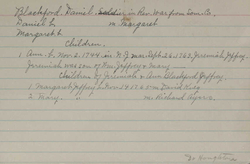 Blackford, Daniel soldier in Rev. War from
Daniel b. m Margaret
Margaret b.
Children.
1. Ann b. Nov. 2, 1744 in N.J. mar. Sept. 26, 1763, Jeremiah Joffrey.
Jeremiah was son of Joffrey & Mary
Children of Jeremiah & Ann Blackford Joffrey.
1. Margaret Joffrey b. Nov. 24 David King
2. Mary. m Richard Ayers